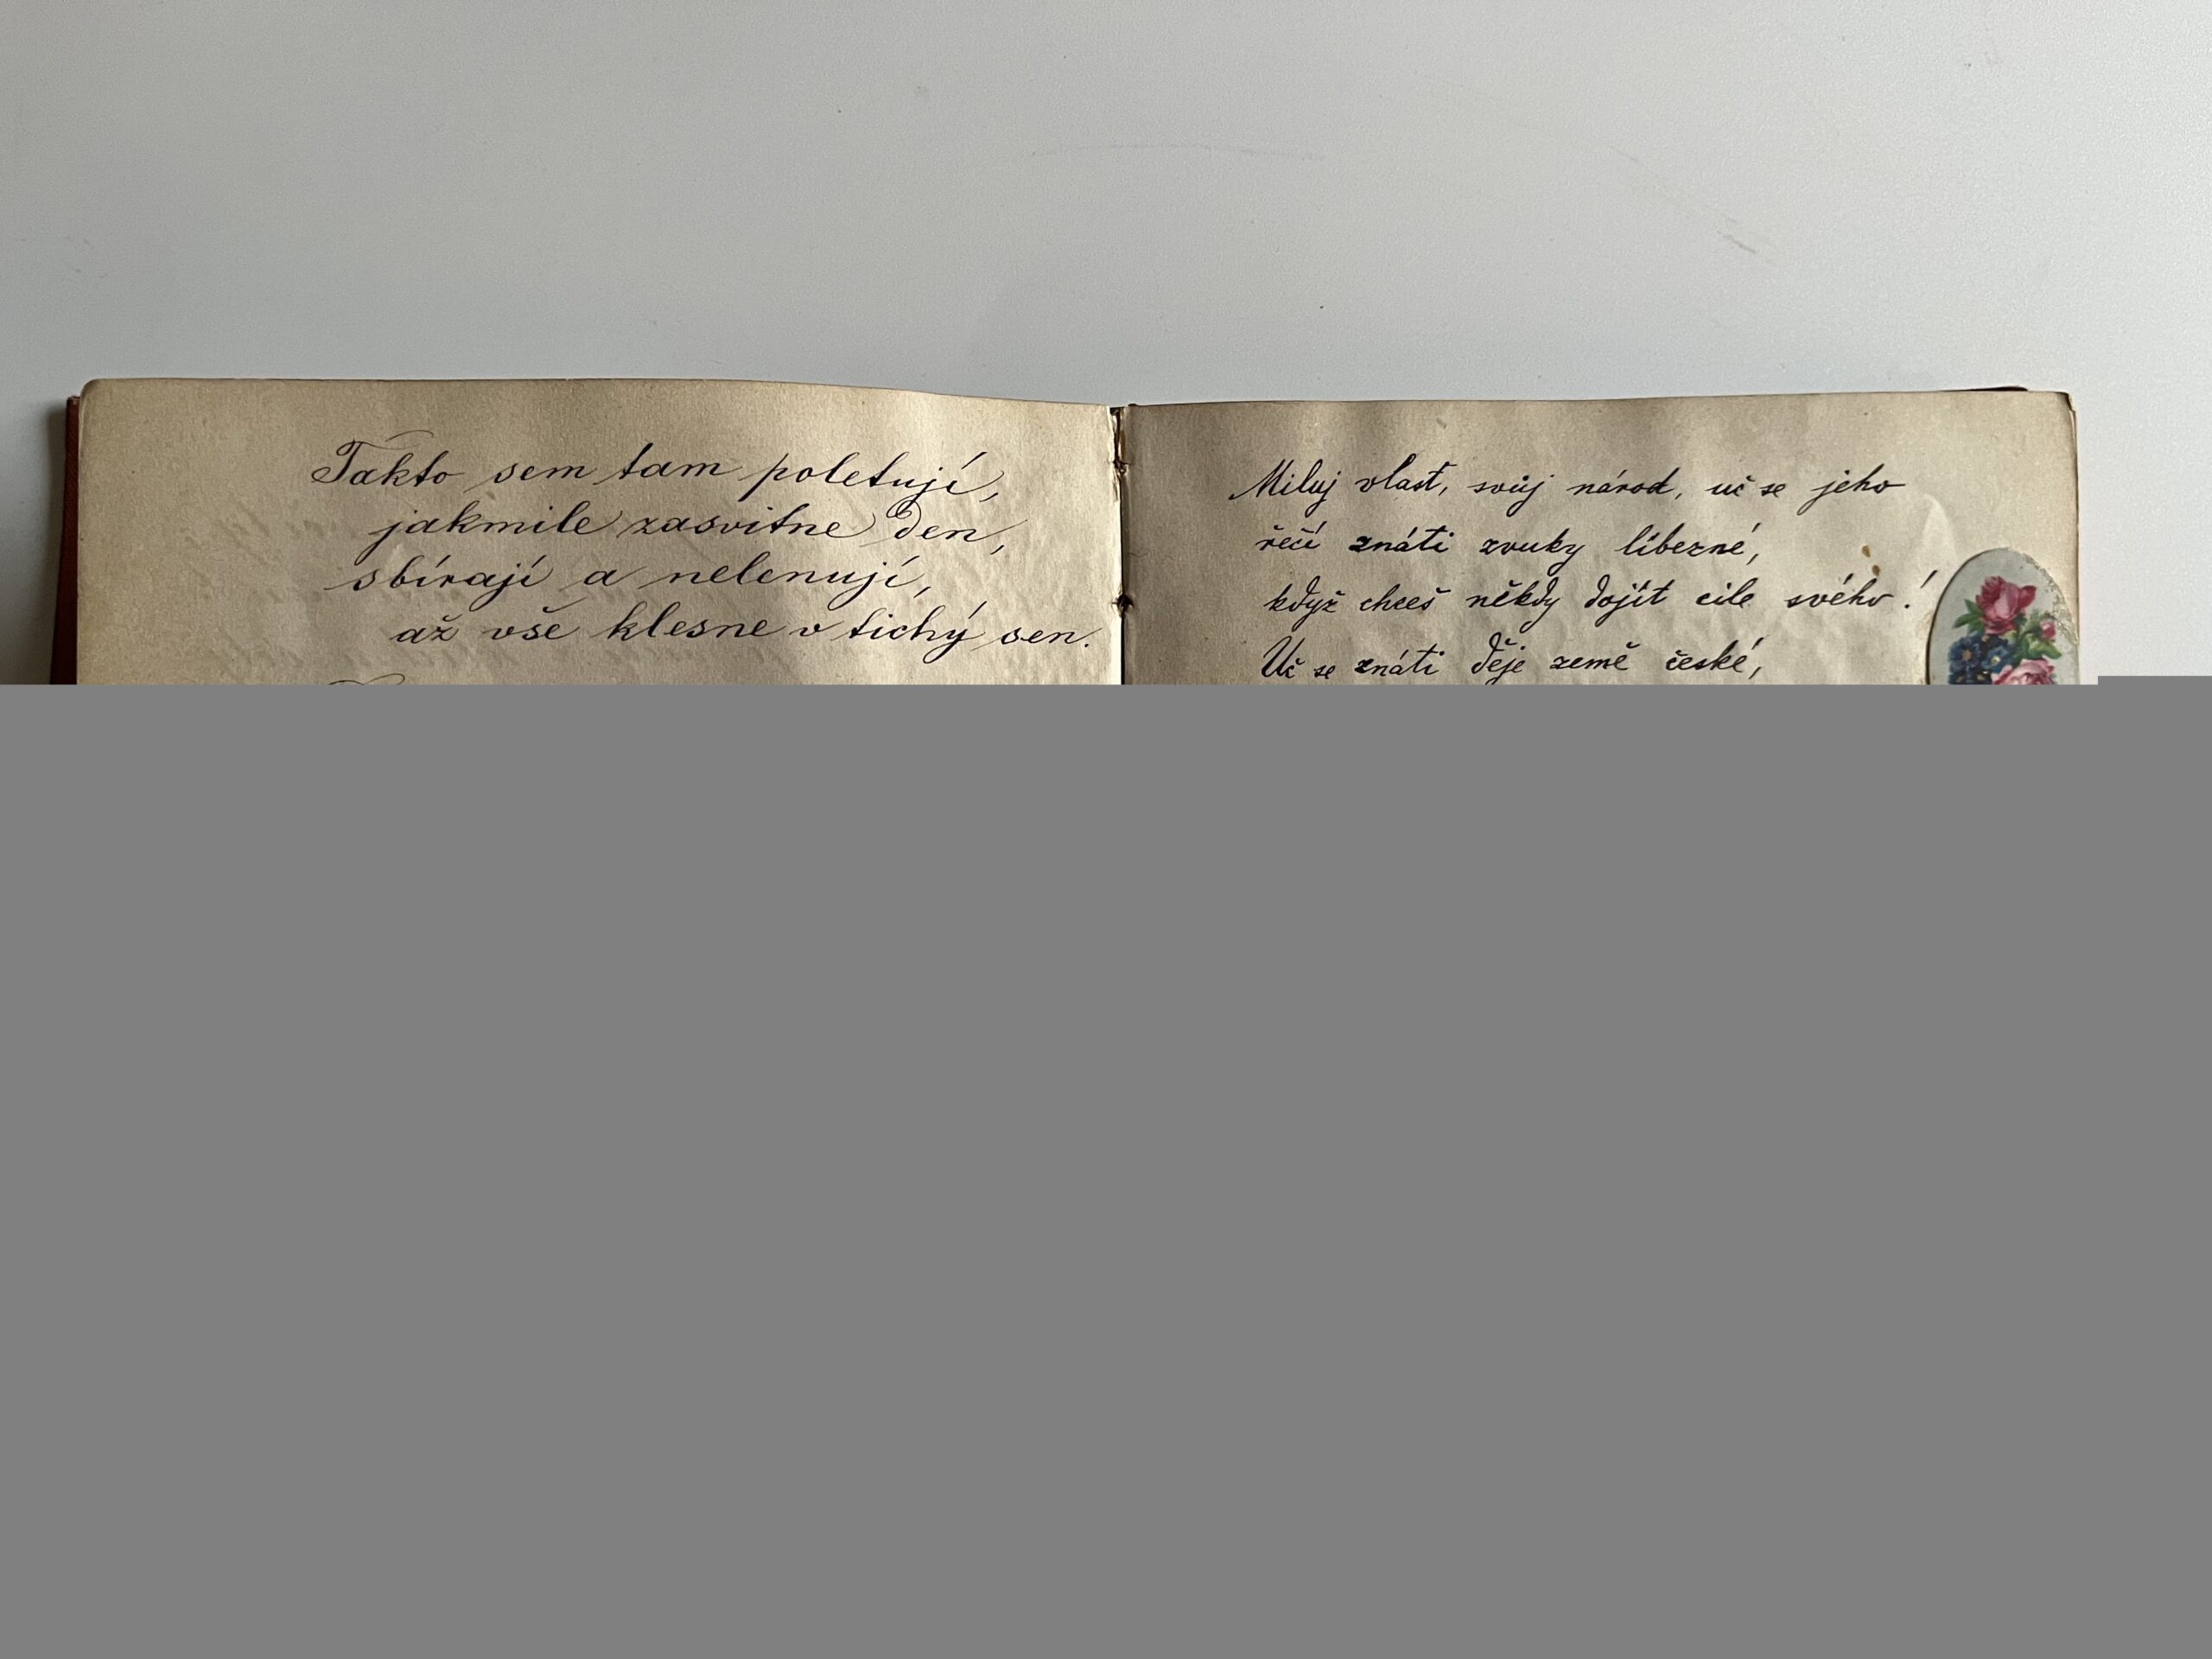 Takto sem tam poletují,
jakmile zasvitne den,
sbírají a nelenují,
až vše klesne v tichý sen.
Miluj vlast, svůj národ, uč se jeho
řečí znáti zvuky líbezné,
když chceš někdy dojít cíle svého!
Uč se znáti děje země české,